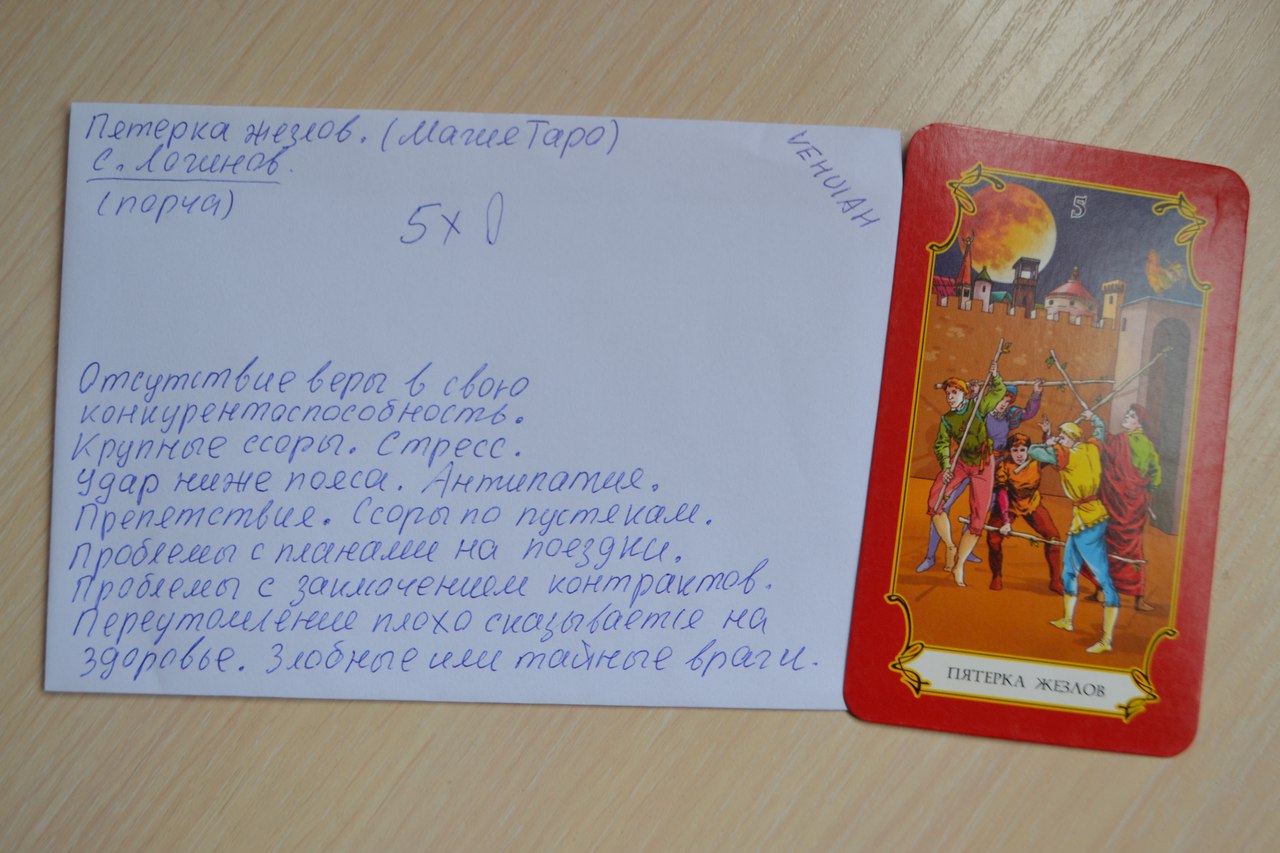 Пятерка жезлов. (Магия Таро)
С. Логинов.
(порча)
5 х 0
VEHUIAH
Отсутствие веры в свою
конкурентоспособность.
Крупные ссоры. Стресс.
Удар ниже пояса. Антипатия.
Препятствия. Ссоры по пустякам.
Проблемы с планами на поездки.
Проблемы с заключением контрактов.
Переутомление плохо сказывается на
здоровье. Злобные или тайные враги.
5
ПЯТЕРКА ЖЕЗЛОВ